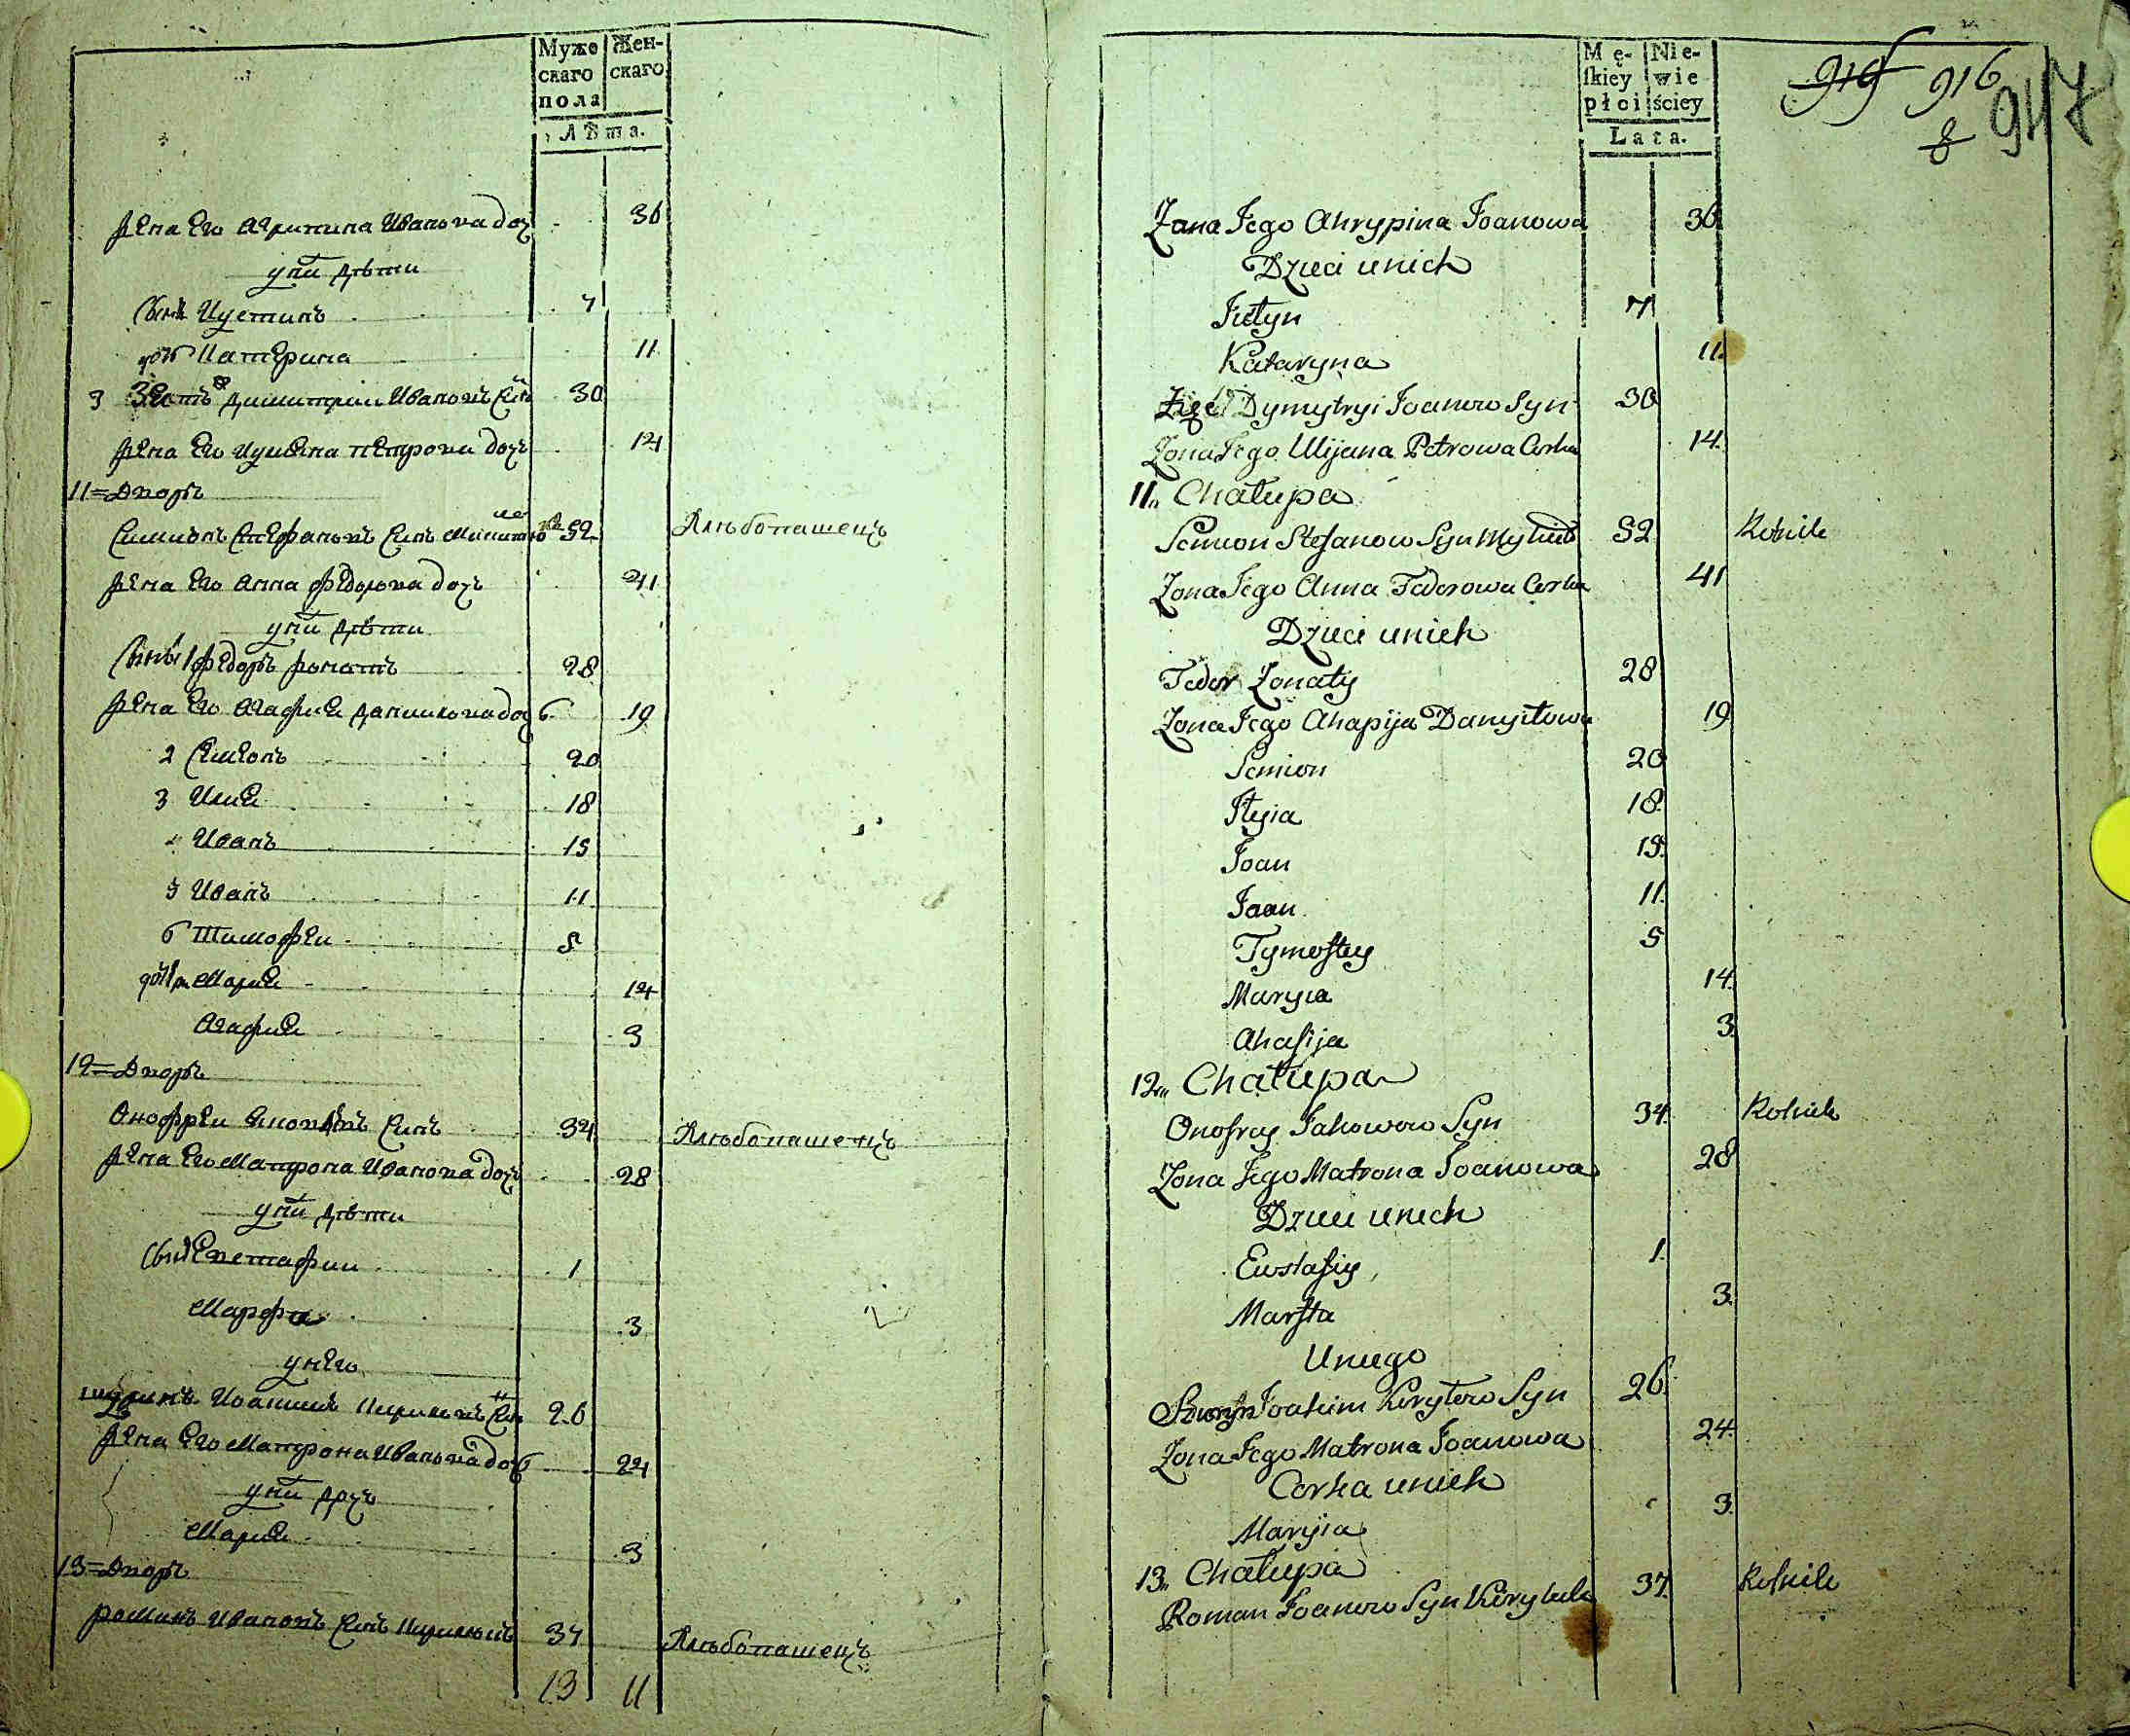 Муже
скаго
пола
Жен-
скаго
Лѣта.
жена Его Агрипина Иванова доч 36
у них дѣти
Сын Иустинъ 7
дочь Катерина 11
3 Зять Димитрии Ивановъ Сынъ 30
жена Его Иулиена петрова дочъ 14
11=Дворъ
Симионъ Стефановъ Сынъ 52 Хлѣбопашецъ
жена Его Анна федорова дочъ 41
у них дѣти
Сыны 1 федоръ жонатъ 28
жена Его Агафиѣ данилова доч 19
2 Симеонъ 20
3 Илиѣ 18
Иванъ 15
5 Иванъ 11
6 Тимофеи 5
дочери Мариѣ 14
Агафиѣ 3
12=Дворъ
Онофреи Яковлевъ Сынъ 34 Хлѣбопашецъ
жена Его Матрона Иванова дочъ 28
у них дѣти
Сын Евстафии 1
Марфа 3
у него
шуринъ Иоакимъ Кириловъ Сын 26
жена Его Матрона Иванова доч 24
у них дочъ
Мариѣ 3
13=Дворъ
роман Ивановъ Сынъ 37 Хлѣбопашецъ
13 11
Mę-
skiey
płci
Nie-
wie
ściey
Lata.
919 916
8 917
Zona Jego Ahrypina Joanowa 36
Dzieci unich
Justyn 7
Kataryna 11.
Zięć Dymytryi Joanow Syn 30
Zona Jego Ulijana Petrowa Corka 14.
11„ Chałupa
Semion Stefanow Syn 52 Rolnik
Zona Jego Anna Fedorowa Corka 41
Dzieci unich
Fedor Zonaty 28
Zona Jego Ahapija Danyłowa 19
Semion 20
Ilyia 18.
Joan 15.
Joan 11.
Tymoftey 5
Maryia 14.
Ahafija 3.
12„ Chałupa
Onofrey Jakowow Syn 34. Rolnik
Zona Jego Matrona Joanowa 28
Dzieci unich
Eustafiy 1.
Marfta 3.
Uniego
Szuryn Joakim Kiryłow Syn 26
Zona Jego Matrona Joanowa 24.
Corka unich
Maryia 3
13„ Chałupa
Roman Joanow Syn 37. Rolnik